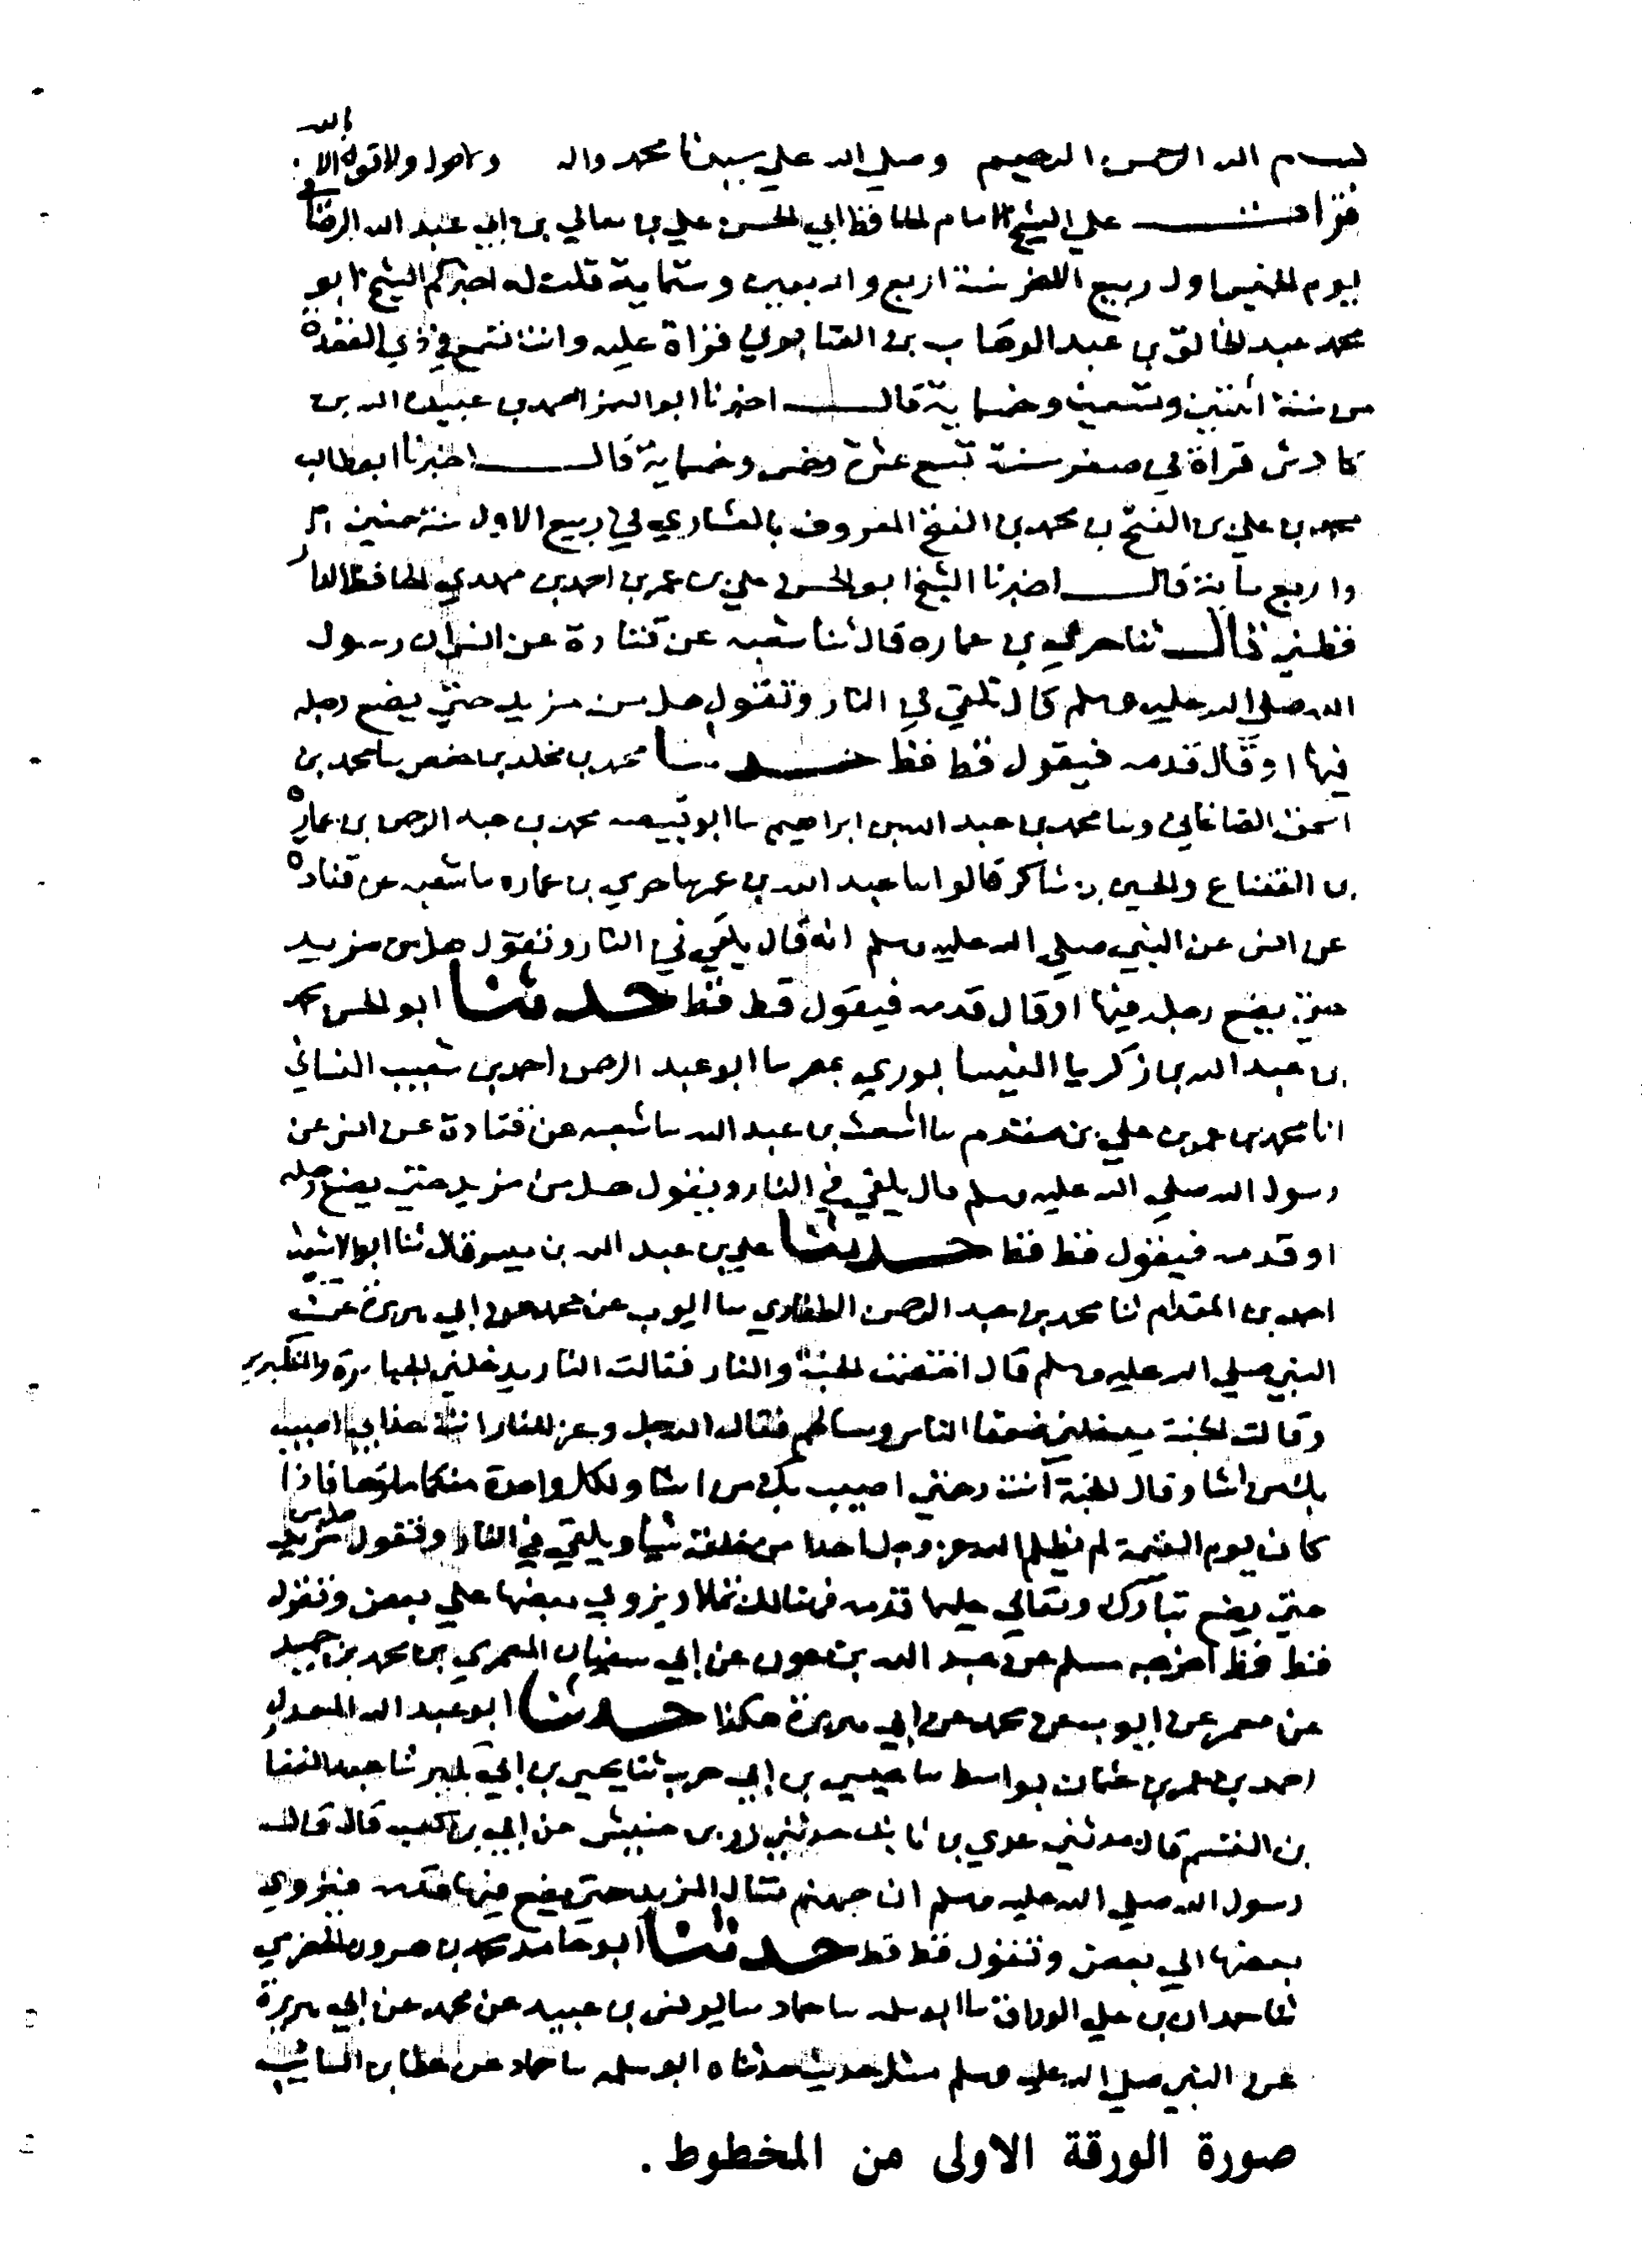 بسم الله الرحمن الرحيم وصلى الله على سيدنا محمد واله ولا حول ولا قوة الا بالله
قرات على الشيخ الامام الحافظ ابي الحسن علي بن معالي بن ابي عبد الله الرصافي
يوم الخميس اول ربيع الاخر سنة اربع واربعين وستماية قلت له اخبركم الشيخ ابو
محمد عبد الخالق بن عبد الوهاب بن الصابوني قراة عليه وانت تسمع في ذي القعدة
من سنة اثنتين وتسعين وخمسماية قال اخبرنا ابو العز احمد بن عبيد الله بن
كادش قراة في صفر سنة تسع عشرة وخمس وخمساية قال اخبرنا ابو طالب
محمد بن علي بن الفتح بن محمد بن الفتح المعروف بالعشاري في ربيع الاول سنة
واربع ماية قال اخبرنا الشيخ ابو الحسن علي بن عمر بن احمد بن مهدي الحافظ الدار
قطني قال ثنا حرمي بن عماره قال ثنا شعبه عن قتادة عن انس ان رسول
الله صلى الله عليه وسلم قال تلقى في النار وتقول هل من مزيد حتى يضع رجله
فيها او قال قدمه فيقول قط قط حدثنا محمد بن مخلد بن حفص نا محمد بن
اسحق الصاغاني ونا محمد بن عبد الله بن ابراهيم نا ابو قبيصه محمد بن عبد الرحمن بن عماره
بن القعقاع والحسين بن شاكر قالوا نا عبد الله بن عمر نا حرمي بن عماره نا شعبه عن قتاده
عن انس عن النبي صلى الله عليه وسلم انه قال يلقى في النار وتقول هل من مزيد
حتى يضع رجله فيها او قال قدمه فيقول قط قط حدثنا ابو الحسن محمد
بن عبد الله بن زكريا النيسابوري بمصر نا ابو عبد الرحمن احمد بن شعيب النسائي
انا محمد بن عمر بن علي بن مقدم نا اشعث بن عبد الله نا شعبه عن قتادة عن انس عن
رسول الله صلى الله عليه وسلم قال يلقى في النار ويقول هل من مزيد حتى يضع رجله
او قدمه فيقول قط قط حدثنا علي بن عبد الله بن مبسر قال ثنا ابو الاشعث
احمد بن المقدام ثنا محمد بن عبد الرحمن الطفاوي نا ايوب عن محمد عن ابي هريرة عن
النبي صلى الله عليه وسلم قال اختصمت الجنة والنار فقالت النار يدخلني الجبابرة والمتكبرين
وقالت الجنة يدخلني ضعفا الناس وسقالهم فقال الله جل وعز للنار انت عذابي اصيب
بك من اشا وقال للجنة انت رحمتي اصيب بك من اشا ولكل واحدة منكما ملوها فاذا
كان يوم القيمة لم يظلم الله عز وجل احدا من خلقه شيا ويلقى في النار وتقول هل من مزيد
حتى يضع تبارك وتعالى عليها قدمه فهنالك تملا ويزوي بعضها على بعض وتقول
قط قط اخرجه مسلم عن عبد الله بن عون عن ابي سفيان المعمري بن محمد بن حميد
عن معمر عن ايوب عن محمد عن ابي هريرة هكذا حدثنا ابو عبد الله المعدل
احمد بن عمر بن عثمان بواسط نا عيسى بن ابي حرب ثنا يحيى بن ابي بكير ثنا عبد الغفار
بن القسم قال حدثني عدي بن ثابت حدثني زر بن حبيش عن ابي بن كعب قال قال
رسول الله صلى الله عليه وسلم ان جهنم تسال المزيد حتى يضع فيها قدمه فينزوي
بعضها الى بعض وتقول قط قط حدثنا ابو حامد محمد بن هرون الحضرمي
ثنا حمدان بن علي الوراق نا ابو سلمه نا حماد نا يونس بن عبيد عن محمد عن ابي هريرة
عن النبي صلى الله عليه وسلم مثله حديث حدثناه ابو سلمه نا حماد عن عطا بن السائب
صورة الورقة الاولى من المخطوط .